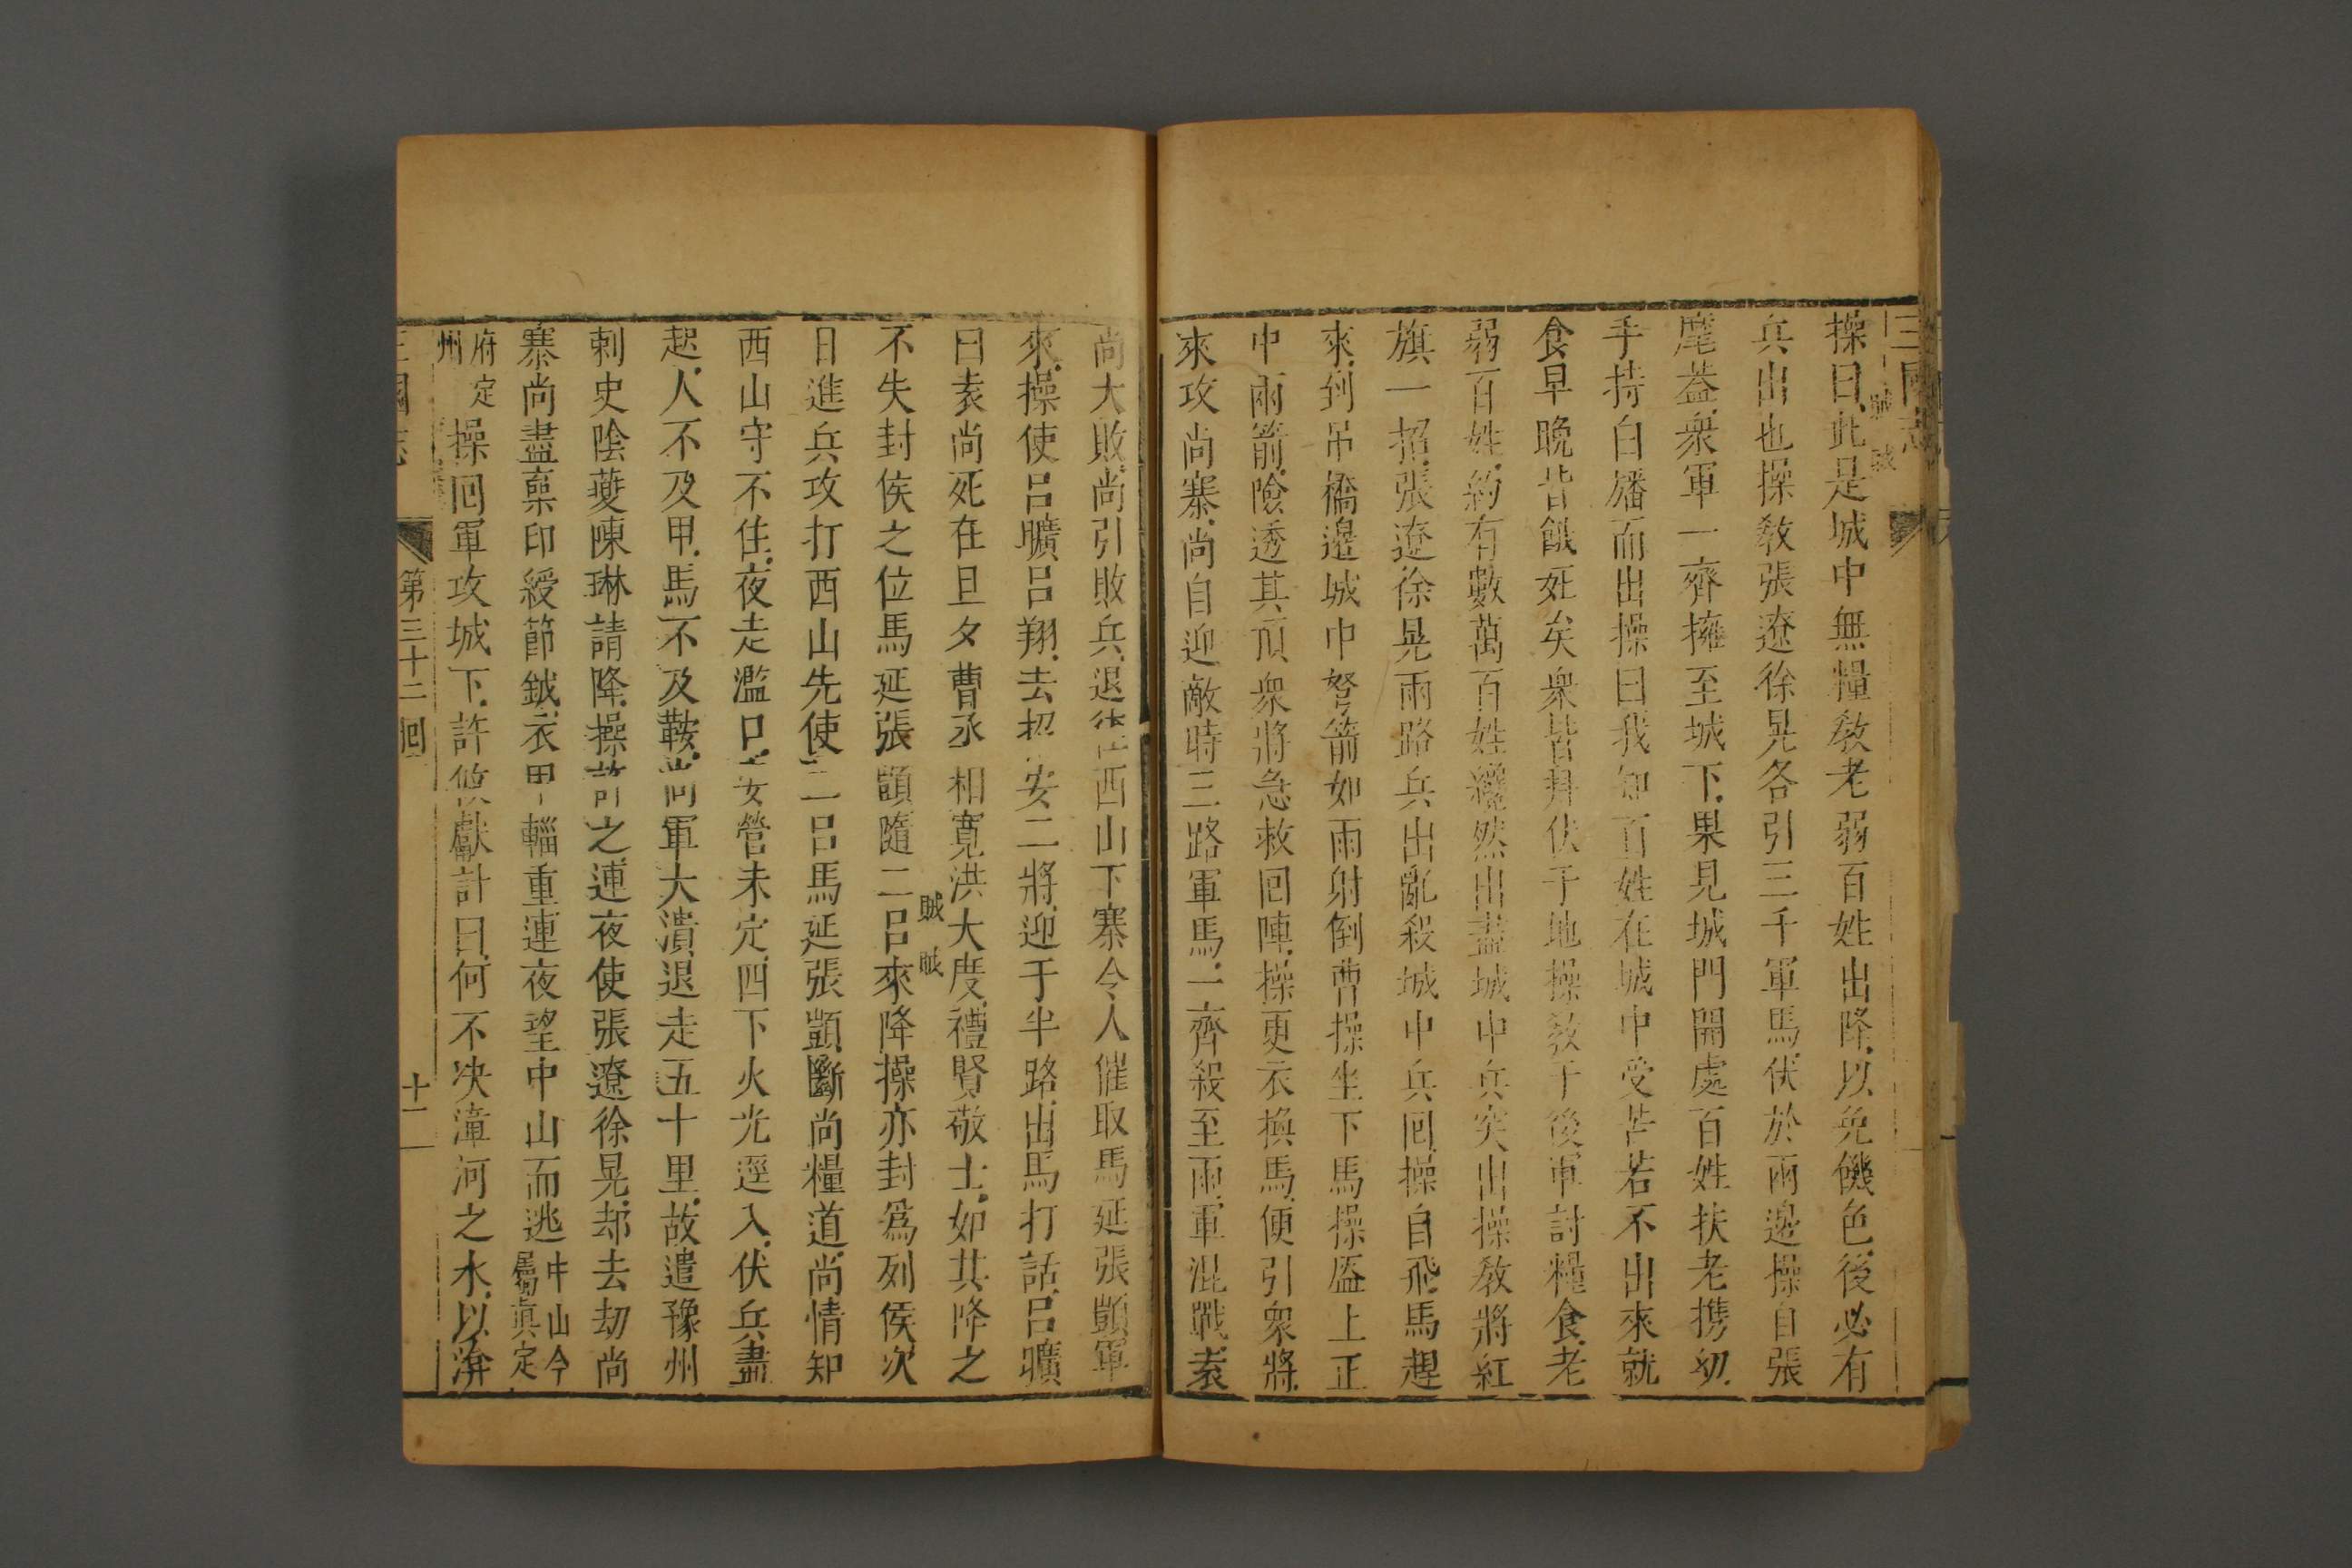 三國志
操曰此是城中無糧教老弱百姓出降以免饑色後必有
賊 賊
兵出也操教張遼徐晃各引三千軍馬伏於兩邊操自張
麾蓋衆軍一齊擁至城下果見城門開處百姓扶老携幼
手持白旛而出操曰我知百姓在城中受苦若不出來就
食早晚皆餓死矣衆皆拜伏于地操教于後軍討糧食老
弱百姓約有數萬百姓纔然出盡城中兵突出操教將紅
旗一招張遼徐晃兩路兵出亂殺城中兵回操自飛馬趕
來到吊橋邊城中弩箭如雨射倒曹操坐下馬操盔上正
中兩箭險透其頂衆將急救回陣操更衣換馬便引衆將
來攻尚寨尚自迎敵時三路軍馬一齊殺至兩軍混戰袁
尚大敗尚引敗兵退往西山下寨令人催取馬延張顗軍
來操使呂曠呂翔去招安二將迎于半路出馬打話呂曠
曰袁尚死在旦夕曹丞相寬洪大度禮賢敬士如其降之
賊 賊
不失封侯之位馬延張顗隨二呂來降操亦封爲列侯次
日進兵攻打西山先使二呂馬延張顗斷尚糧道尚情知
西山守不住夜走濫口安營未定四下火光逕入伏兵盡
起人不及甲馬不及鞍尚軍大潰退走五十里故遣豫州
刺史陰夔陳琳請降操許之連夜使張遼徐晃却去劫尚
寨尚盡棄印綬節鉞衣甲輜重連夜望中山而逃中山今屬真定
府定州操回軍攻城下許攸獻計曰何不决漳河之水以渰
三國志 第三十二回 十一